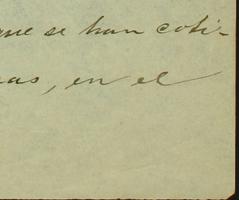 que se han coti-
as, en el